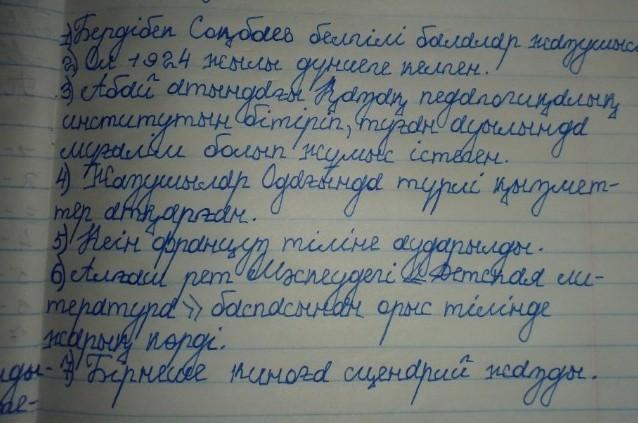 1) Бердібек Соқбаев белгілі балалар жазушысы
2) Ол 1924 жылы дүниеге келген.
3) Абай атындағы Қазақ педагогикалық
институтын бітіріп, туған ауылында
мұғалім болып жұмыс істеген.
4) Жазушылар Одағында түрлі қызмет-
тер атқарған.
5) Кейін француз тіліне аударылды.
6) Алғаш рет Мәскеудегі «Детская ли-
тература» баспасынан орыс тілінде
жарық көрді.
7) Бірнеше киноға сценарий жазды.